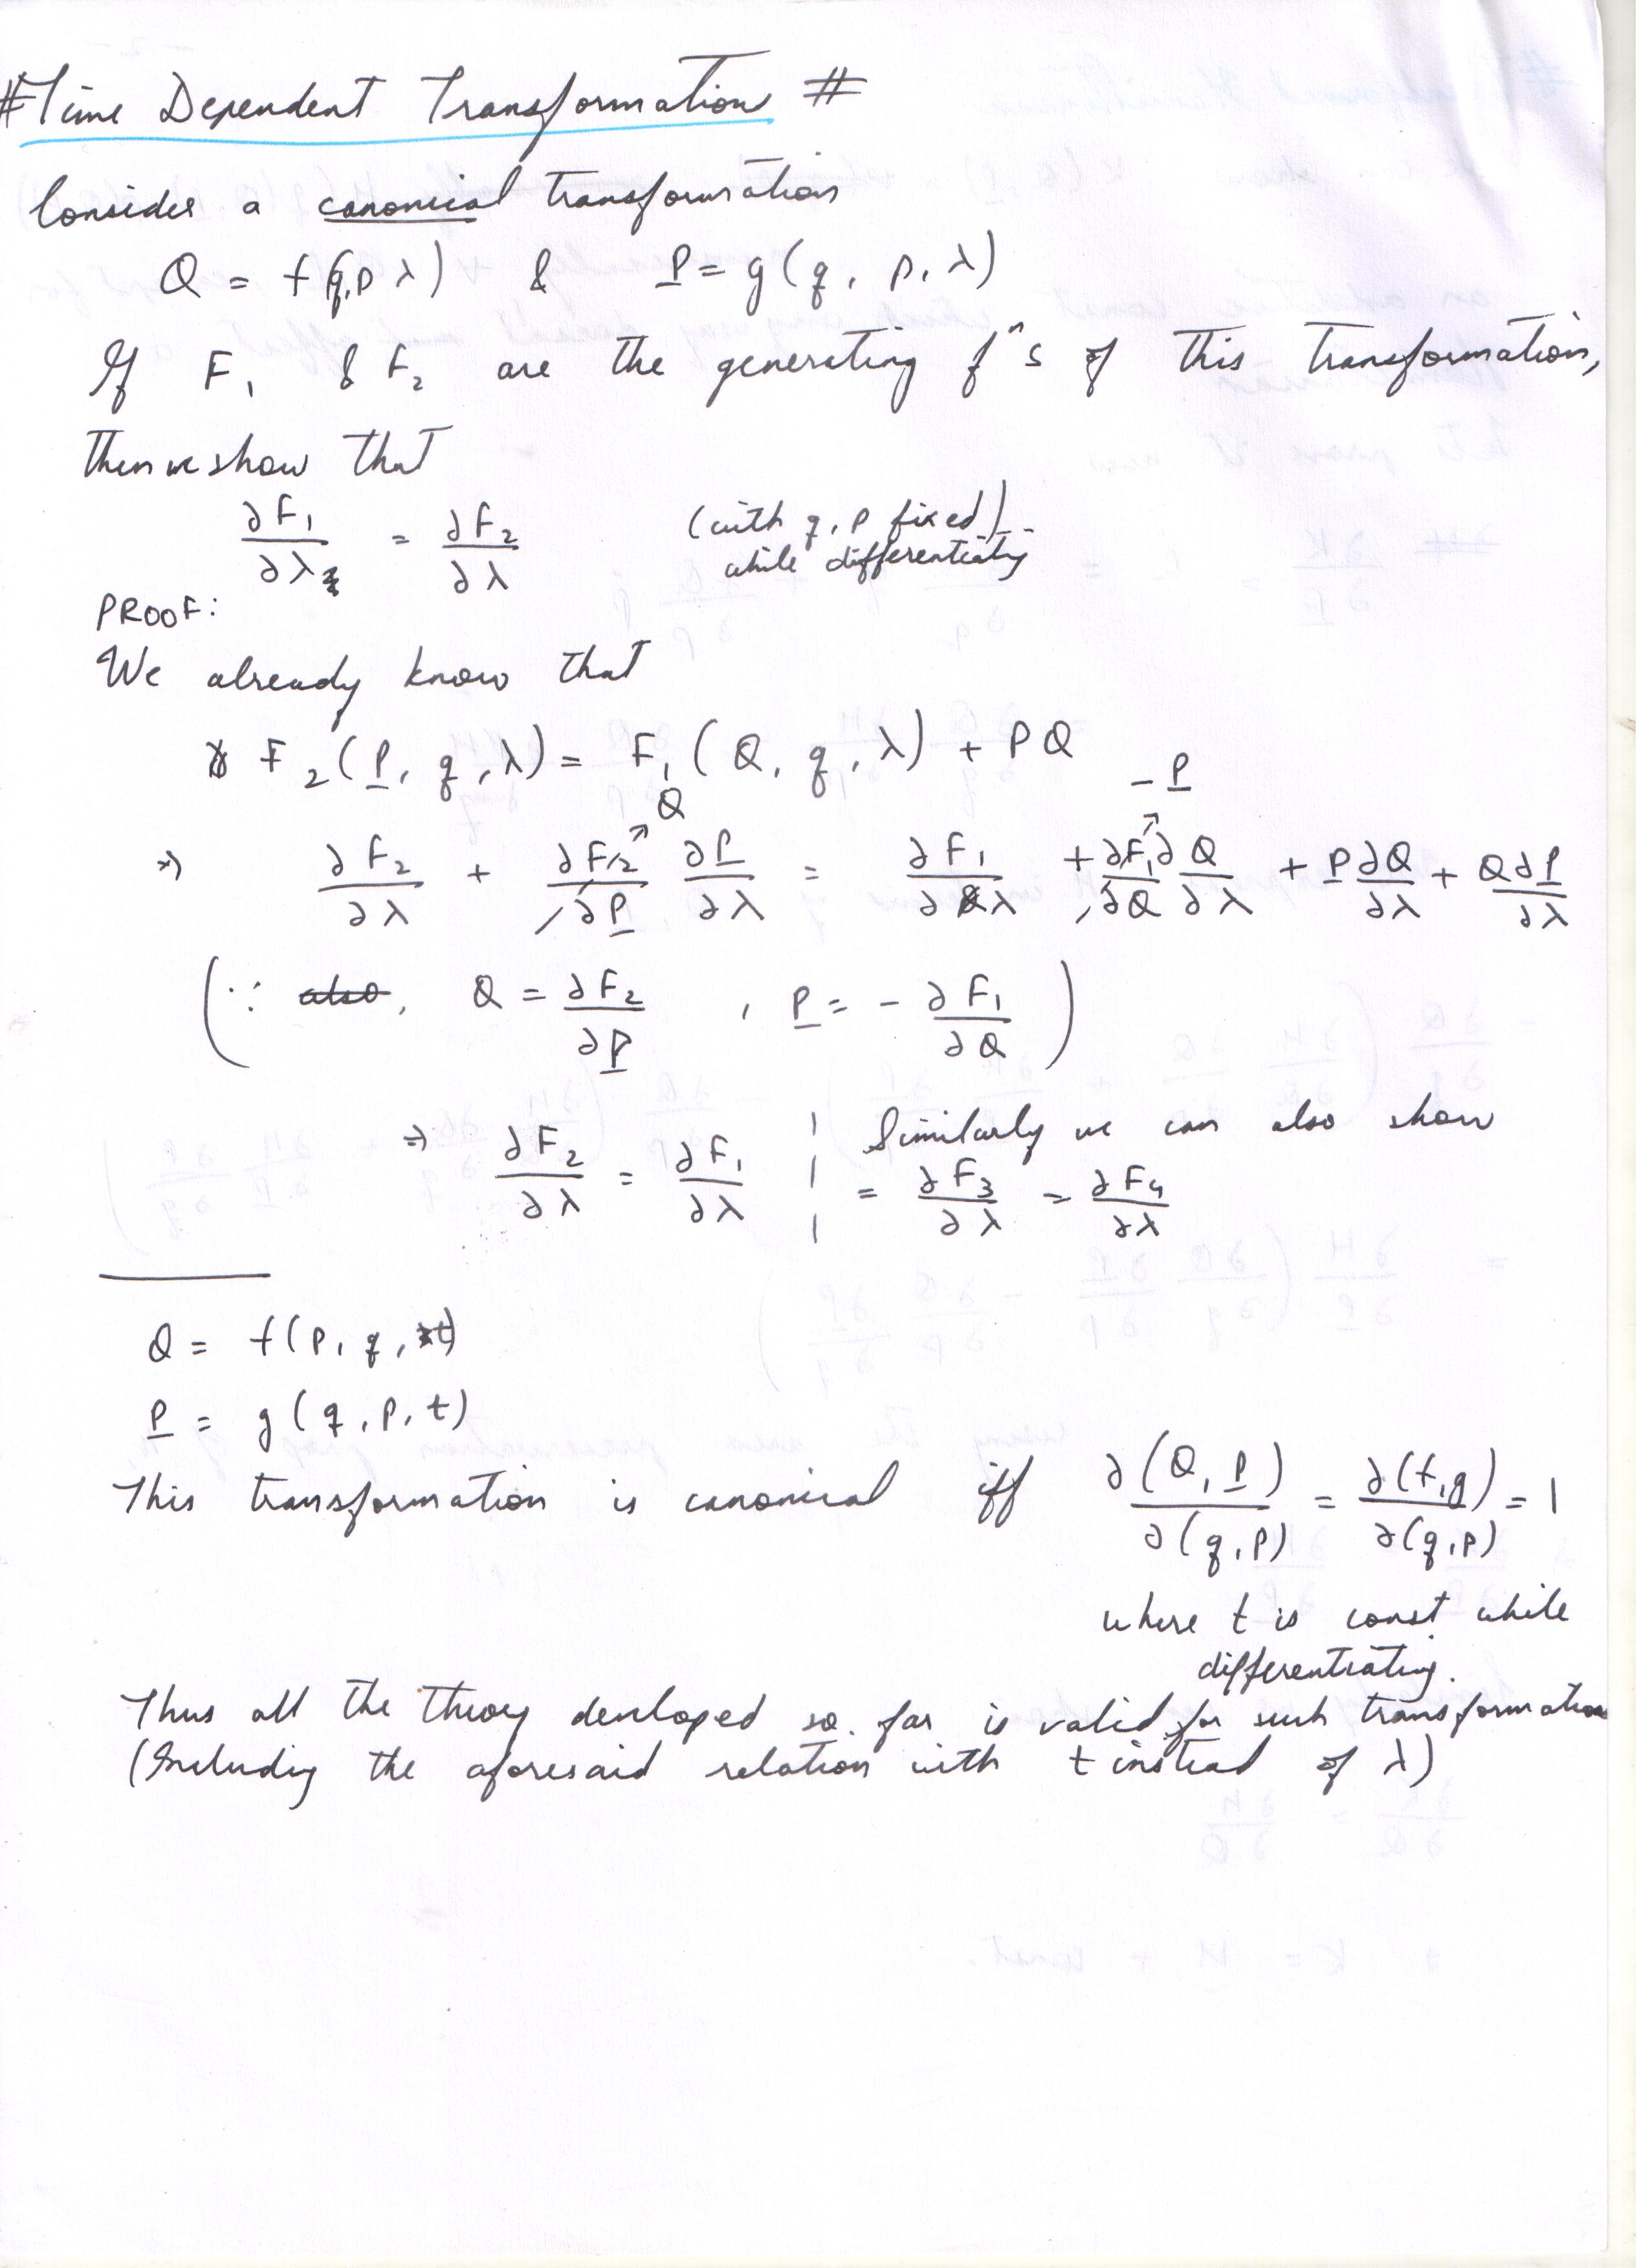 # Time Dependent Transformation #
Consider a canonical transformation
Q = f(q,p λ) & P = g(q, p, λ)
If F₁ & F₂ are the generating fⁿs of this transformation,
Then we show that
∂F₁/∂λ = ∂F₂/∂λ (with q, p fixed) while differentiating
PROOF:
We already know that
F₂(P, q, λ) = F₁(Q, q, λ) + PQ
Q - P
⇒ ∂F₂/∂λ + ∂F₂/∂P ∂P/∂λ = ∂F₁/∂λ + ∂F₁/∂Q ∂Q/∂λ + P∂Q/∂λ + Q∂P/∂λ
(∵ also, Q = ∂F₂/∂P , P = - ∂F₁/∂Q)
⇒ ∂F₂/∂λ = ∂F₁/∂λ | Similarly we can also show
= ∂F₃/∂λ = ∂F₄/∂λ
Q = f(p, q, t)
P = g(q, p, t)
This transformation is canonical iff ∂(Q, P)/∂(q, p) = ∂(f, g)/∂(q, p) = 1
where t is const while
differentiating.
Thus all the theory developed so far is valid for such transformation
(Including the aforesaid relation with t instead of λ)